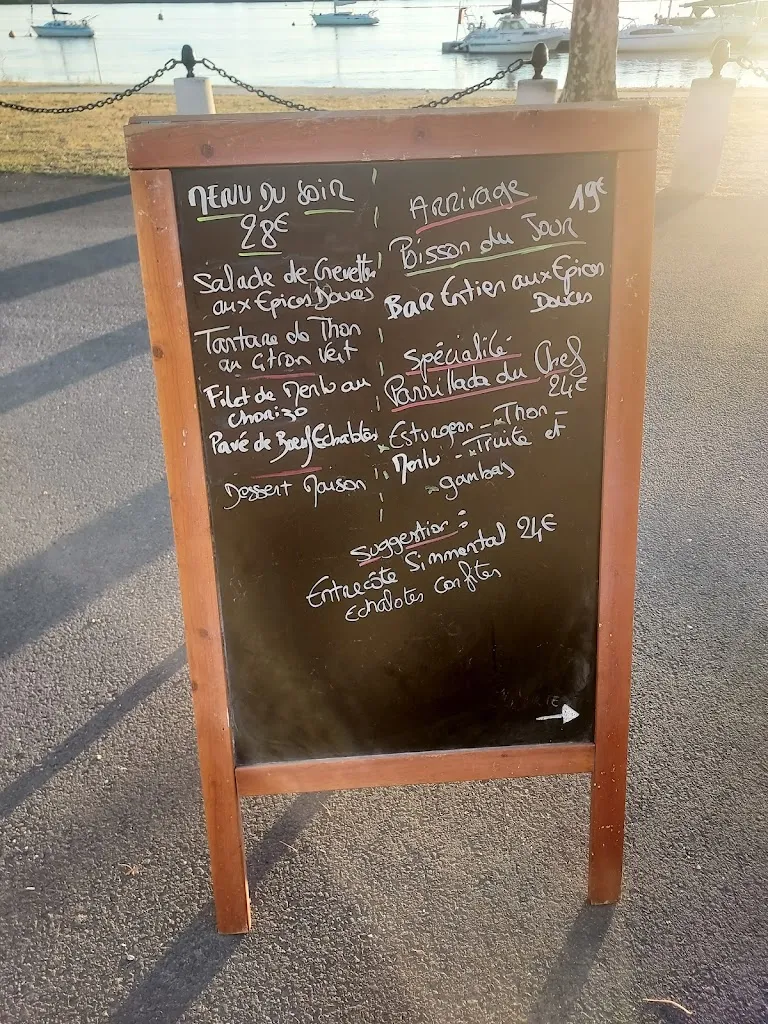 MENU DU SOIR
28€
Salade de Crevettes
aux Epices Douces
Tartare de Thon
au Citron Vert
Filet de Merlu au
chorizo
Pavé de Boeuf Echablotes
Dessert Maison
Arrivage 19€
Poisson du Jour
BAR Entier aux Epices
Douces
Spécialité
Parrillada du Chef
24€
Esturgeon - Thon -
Merlu - Truite et
- gambas
Suggestion :
Entrecôte Simmental 24€
Echalotes Confites